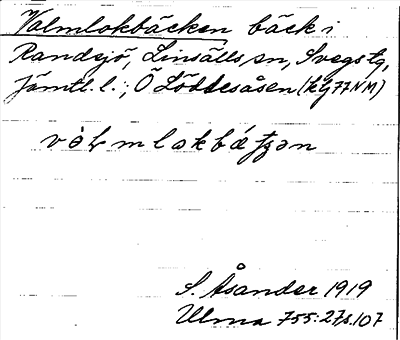 Valmlokbäcken bäck i
Randsjö, Linsälls sn, Svegs tg,
Jämtl. l.; Ö Löddesåsen (kg 77 NM)
S. Åsander 1919
Ulma 755:27 s. 107